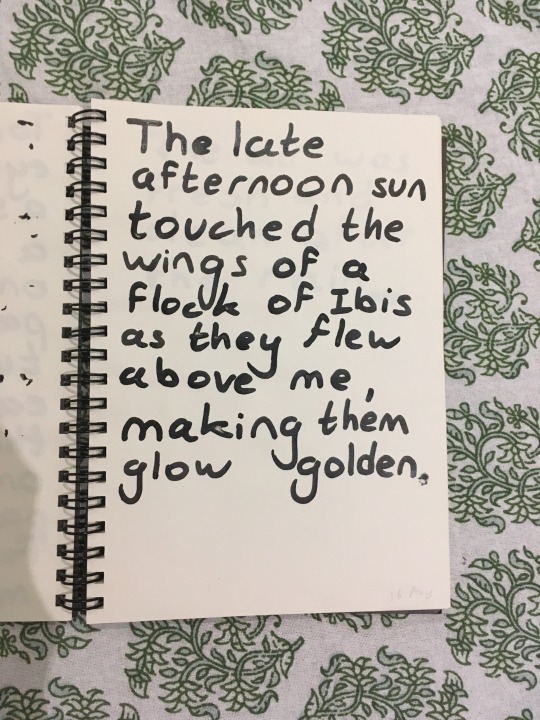 The late
afternoon sun
touched the
wings of a
flock of Ibis
as they flew
above me,
making them
glow golden.